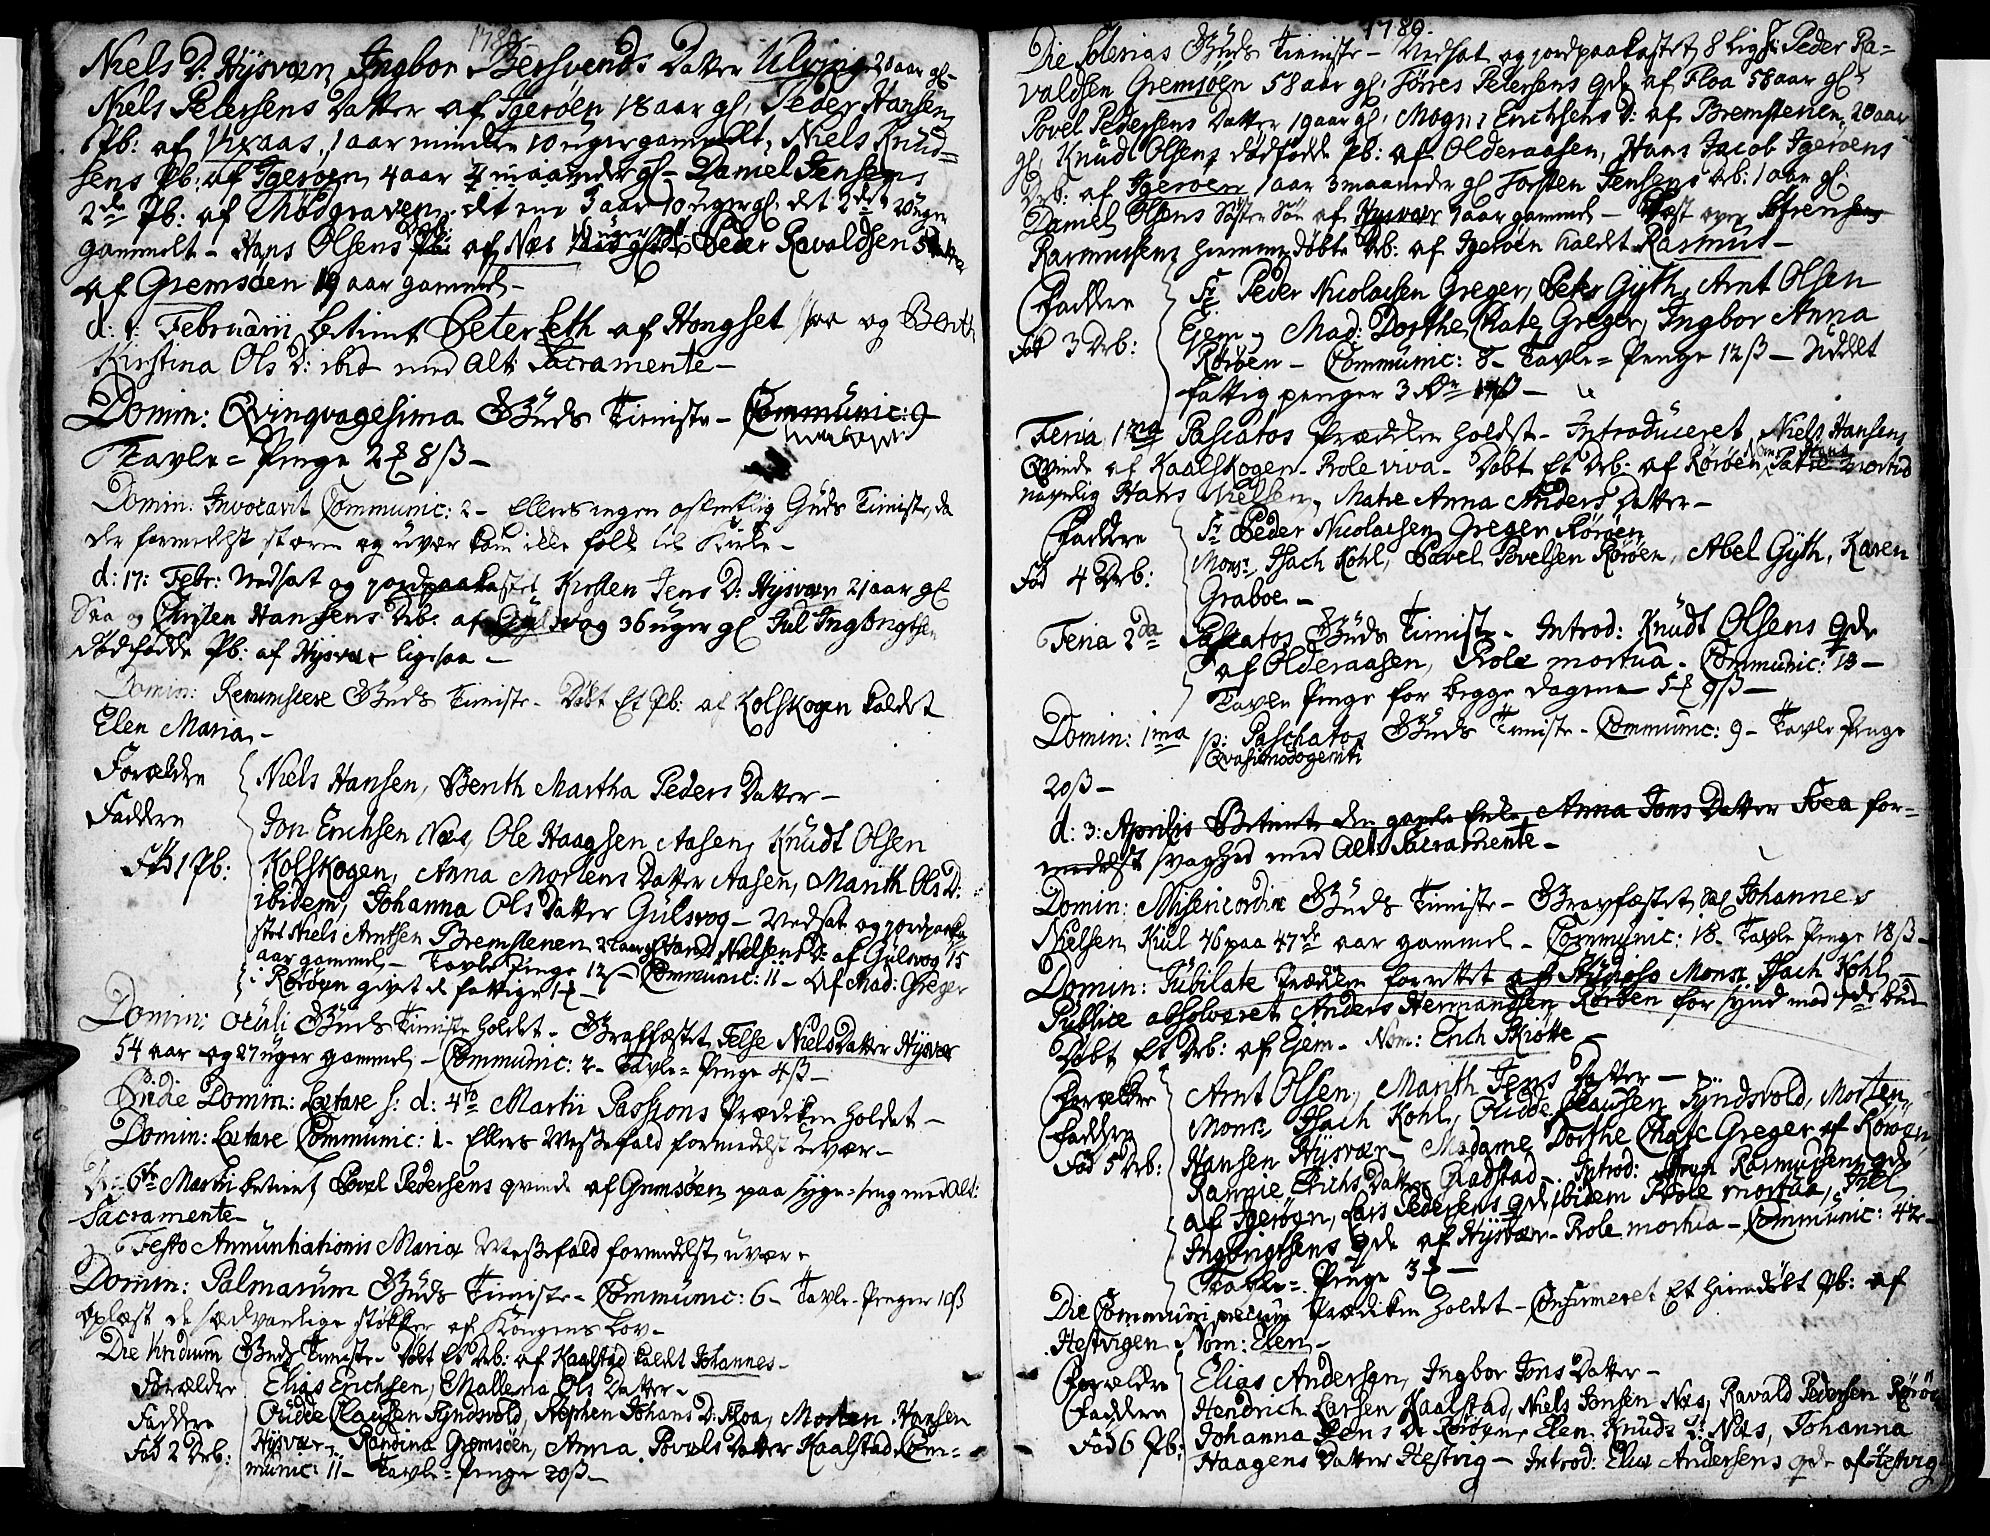 1789
Niels D: Hysvær, Ingbor Bersvends Datter Ulvinge 20 aar gl-
Niels Petersens Datter af Igerøen 18 aar gl, Peder Hansens
Pb: af Vixaas, 1 aar mindre 10 uger gammelt, Niels Knud=
sens Pb: af Igerøen, 4 aar 4 maaneder gl- Daniel Jensens
2de Pb: af Thødgraven, det ene 3 aar 10 uger gl: det 2det 20 uger
gammelt - Hans Olsens af Næs Peder Ravaldsen
af Gremsøen 19 aar gammel -
d: Februarii betient Peter Eeth af Hongset Saa og Benth
Kirstina Ols D: ibid med Alt: Sacramente -
Domin: Qvinqvagesima Guds Tieniste - Communic: 9
Tavle = Penge 2 8 ß -
Domin: Invocavit Communic: 2 - Ellers ingen offentlig Guds Tieniste, da
der formedelst storm og uvær kom ikke folk til Kirke -
d: 17: Febr: Nedsat og jordpaakastet Kirsten Jens D: Hysvær 21 aar gl
Saa og Christen Hansens Drb: af Gulsvog 36 uger gl Jul Ingbrigtsens
dødfødde Pb: af Hysvær ligesaa -
Domin: Reminiscere Guds Tieniste - Døbt Et Pb: af Kolskogen kaldet
Elen Maria -
Forældre Niels Hansen, Benth Martha Peders Datter -
Faddere Jon Erichsen Næs, Ole Haagsen Aasen, Knudt Olsen
Fød 1 Pb: Kolskogen, Anna Mortens Datter Aasen, Marith Ols D:
ibidem, Johanna Ols Datter Gulsvog - Nedsat og jordpaaka
stet Niels Arntsen Bremstenen 2 aar gl Hans Nielsens D: af Gulsvog 15
aar gammel - Tavle Penge 12 ß - Communic: 11 - Af Mad: Greger
i Rørøen givet de fattige 1 -
Domin: Oculi Guds Tieniste holdet - Graffæstet Felse Niels Datter Hysvær
54 aar og 27 uger gammel - Communic: 2 - Tavle = Penge 4 ß -
Domin: Lætare s: d: 4to Martii Passions Prædiken holdet -
Domin: Lætare Communic: 1 - Ellers Messefald formedelst uvær -
6te Martii betient Povel Pedersens qvinde af Gremsøen paa syge = seng med Alt:
Sacramente -
Festo Annuntiationis Mariæ Messefald formedelst uvær -
Domin: Palmarum Guds Tieniste - Communic: 6 - Tavle - Penge 10 ß
oplæst de sædvanlige støkker af Kongens Lov -
Die Viridium Guds Tieniste - Døbt Et Drb: af Kaalstad kaldet Johannes -
Forældre Elias Erichsen, Mallena Ols Datter -
Faddere Oudde Clausen Tyndsvold, Stephen Johans D: Floa, Morten Hansen
Fød 2 Drb: Hysvær, Randina Gremsøen, Anna Povels Datter Kaalstad. Com=
munic: 11 - Tavle = Penge 20 ß -
1789.
Die Solenias Guds Tieniste - Nedsat og jordpaakastet 8 Lig s: Peder Ra=
valdsen Gremsøen 58 aar gl, Torres Petersens qde af Floa 58 aar gl,
Povel Pedersens Datter 19 aar gl, Mogns Erichsens D: af Bremstenen, 20 aar
gl, Knudt Olsens dødfødde Pb: af Olderaasen, Hans Jacob Igerøens
Drb: af Igerøen 1 aar 3 maaneder gl Torsten Jensens Drb: 1 aar gl:
Daniel Olsens Søster Søn af Hysvær 1 aar gammel - Læst over Sørensens
Rasmusens hiemmedøbte Drb: af Igerøen kaldet Rasmus -
Faddere Sr Peder Nicolaisen Greger, Peter Gyth, Arnt Olsen
Fød 3 Drb: Ejem, Mad: Dorthe Chate Greger, Ingbor Anna
Rørøen - Communic: 8 - Tavle = Penge 12 ß - Uddelt
fattig penger 3
Feria 1ma Paschatos Prædiken holdet - Introduceret Niels Hansens
Qvinde af Kaalskogen - Prole viva - Døbt Et Drb: af Rørøen, Patre mortuo
navnlig Hans Nielsen, Matre Anna Anders Datter -
Faddere Sr Peder Nicolaisen Greger Rørøen
Fød 4 Drb: Monsr Isach Kohl, Povel Povelsen Rørøen, Abel Gyth, Karen
Graboe -
Feria 2da Paschatos Guds Tieniste - Introd: Knudt Olsens Qde
af Olderaasen, Prole mortua - Communic: 13 -
Tavle Penge for begge dagene 5 9 ß -
Domin: 1ma p: Paschatos Guds Tieniste - Communic: 9 - Tavle Penge
Qvasimodogeniti
20 ß -
d: 3: Aprilis Betient den gamle Enke, Anna Jons Datter Floa for=
medelst svaghed med Alt: Sacramente -
Domin: Misericordiæ Guds Tieniste - Gravfæstet Johannes
Nielsen Kiul 46 paa 47de aar gammel - Communic: 18 - Tavle Penge 18 ß -
Domin: Jubilate Prædiken forrettet af Studioso Monsr Isach Kohl -
Publice absolveret Anders Hermandsen Rørøen for synd mod 7de bud
Døbt Et Drb: af Ejem - Nom: Erich Skrøtte -
Forældre Arnt Olsen, Marith Jens Datter -
Faddere Monsr Isach Kohl, Oudde Clausen Tyndsvold, Morten
Fød 5 Drb: Hansen Hysvær, Madame Dorthe Chate Greger af Rørøen,
Rannie Erichs Datter Gladstad - Introd: Rasmusens qde
af Igerøen, Lars Pedersens qde, ibidem Prole mortua, Juel
Ingbrigtsens Qde af Hysvær - Role mortua - Communic: 42 -
Tavle = Penge 3 -
Die Communi precum Prædiken holdet - Confirmeret Et hiemdøbt Pb: af
Hestvigen Nom: Elen -
Forældre Elias Andersen, Ingbor Jons Datter -
Faddere Hendrich Larsen Kaalstad, Niels Jonsen Næs, Ravald Pedersen Rørøe
Fød 6 Pb: Johanna Jens D: Rørøen, Elen Knuds D: Næs, Johanna
Haagens Datter Hestvig - Introd: Elias Andersens qde af Hestvig